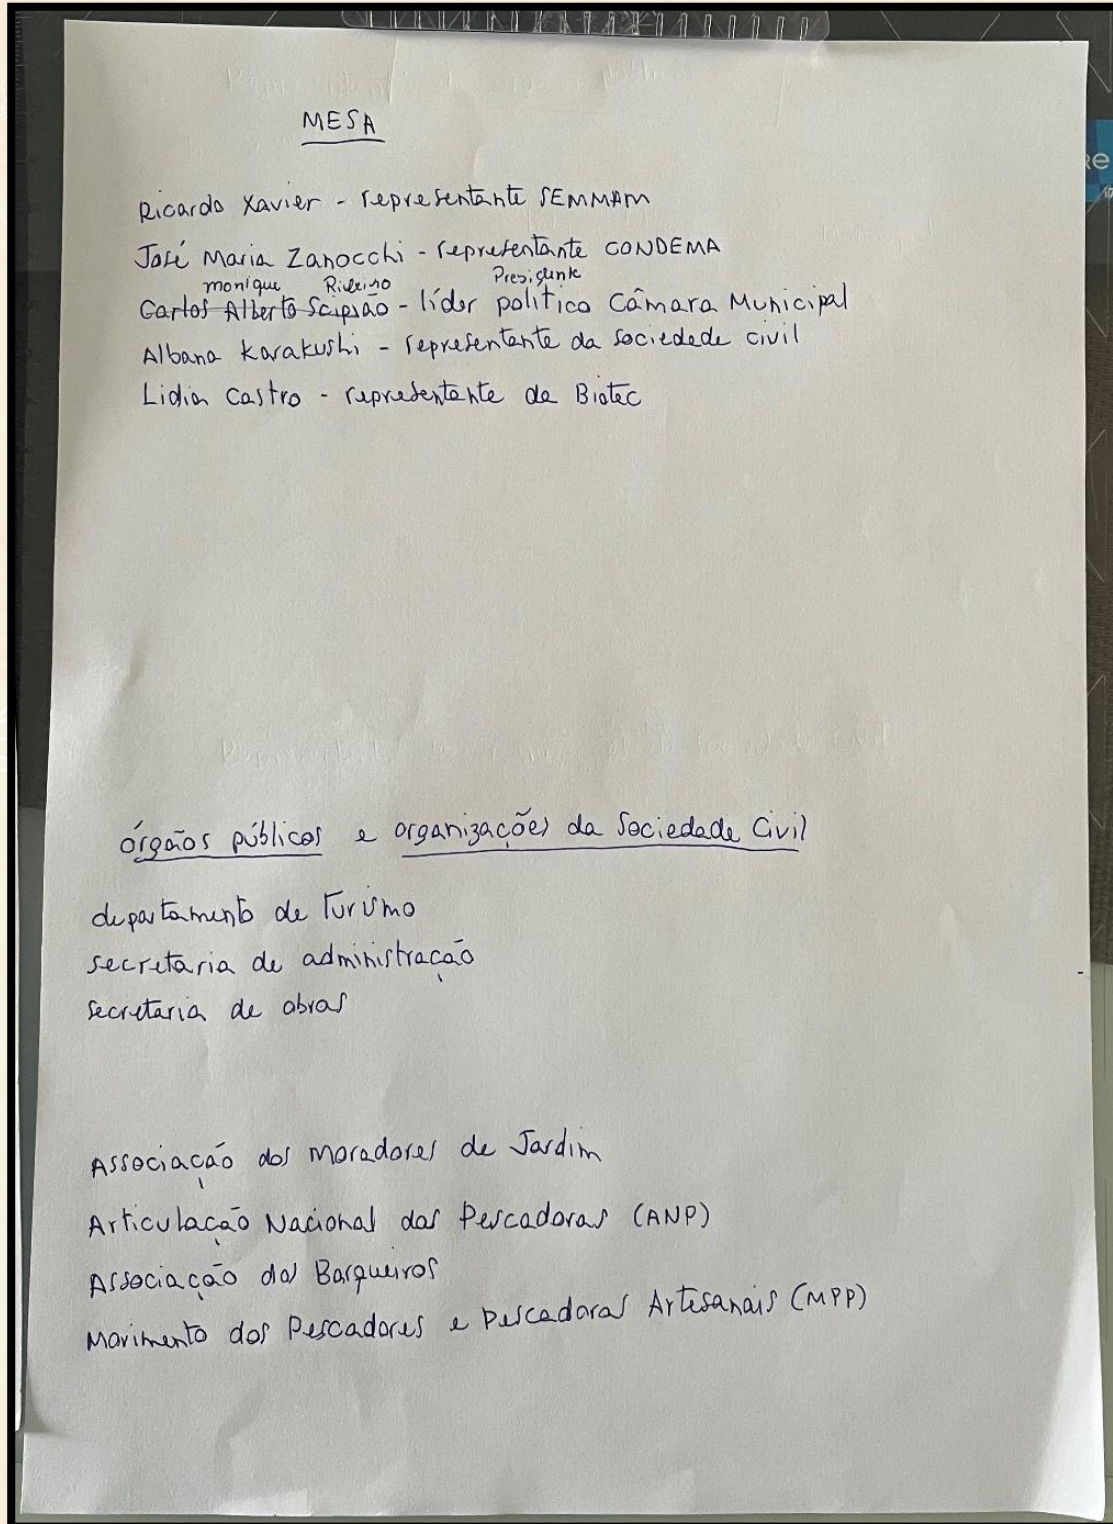 MESA
Ricardo Xavier - representante SEMMAM
José Maria Zanocchi - representante CONDEMA
monique Ribeiro Presidente
Carlos Alberto Scipião - líder político Câmara Municipal
Albana Karakushi - representante da sociedade civil
Lidia Castro - representante da Biotec
órgãos públicos e organizações da Sociedade Civil
departamento de Turismo
secretaria de administração
secretaria de obras
Associação dos moradores de Jardim
Articulação Nacional das Pescadoras (ANP)
Associação dos Barqueiros
Movimento dos Pescadores e Pescadoras Artesanais (MPP)